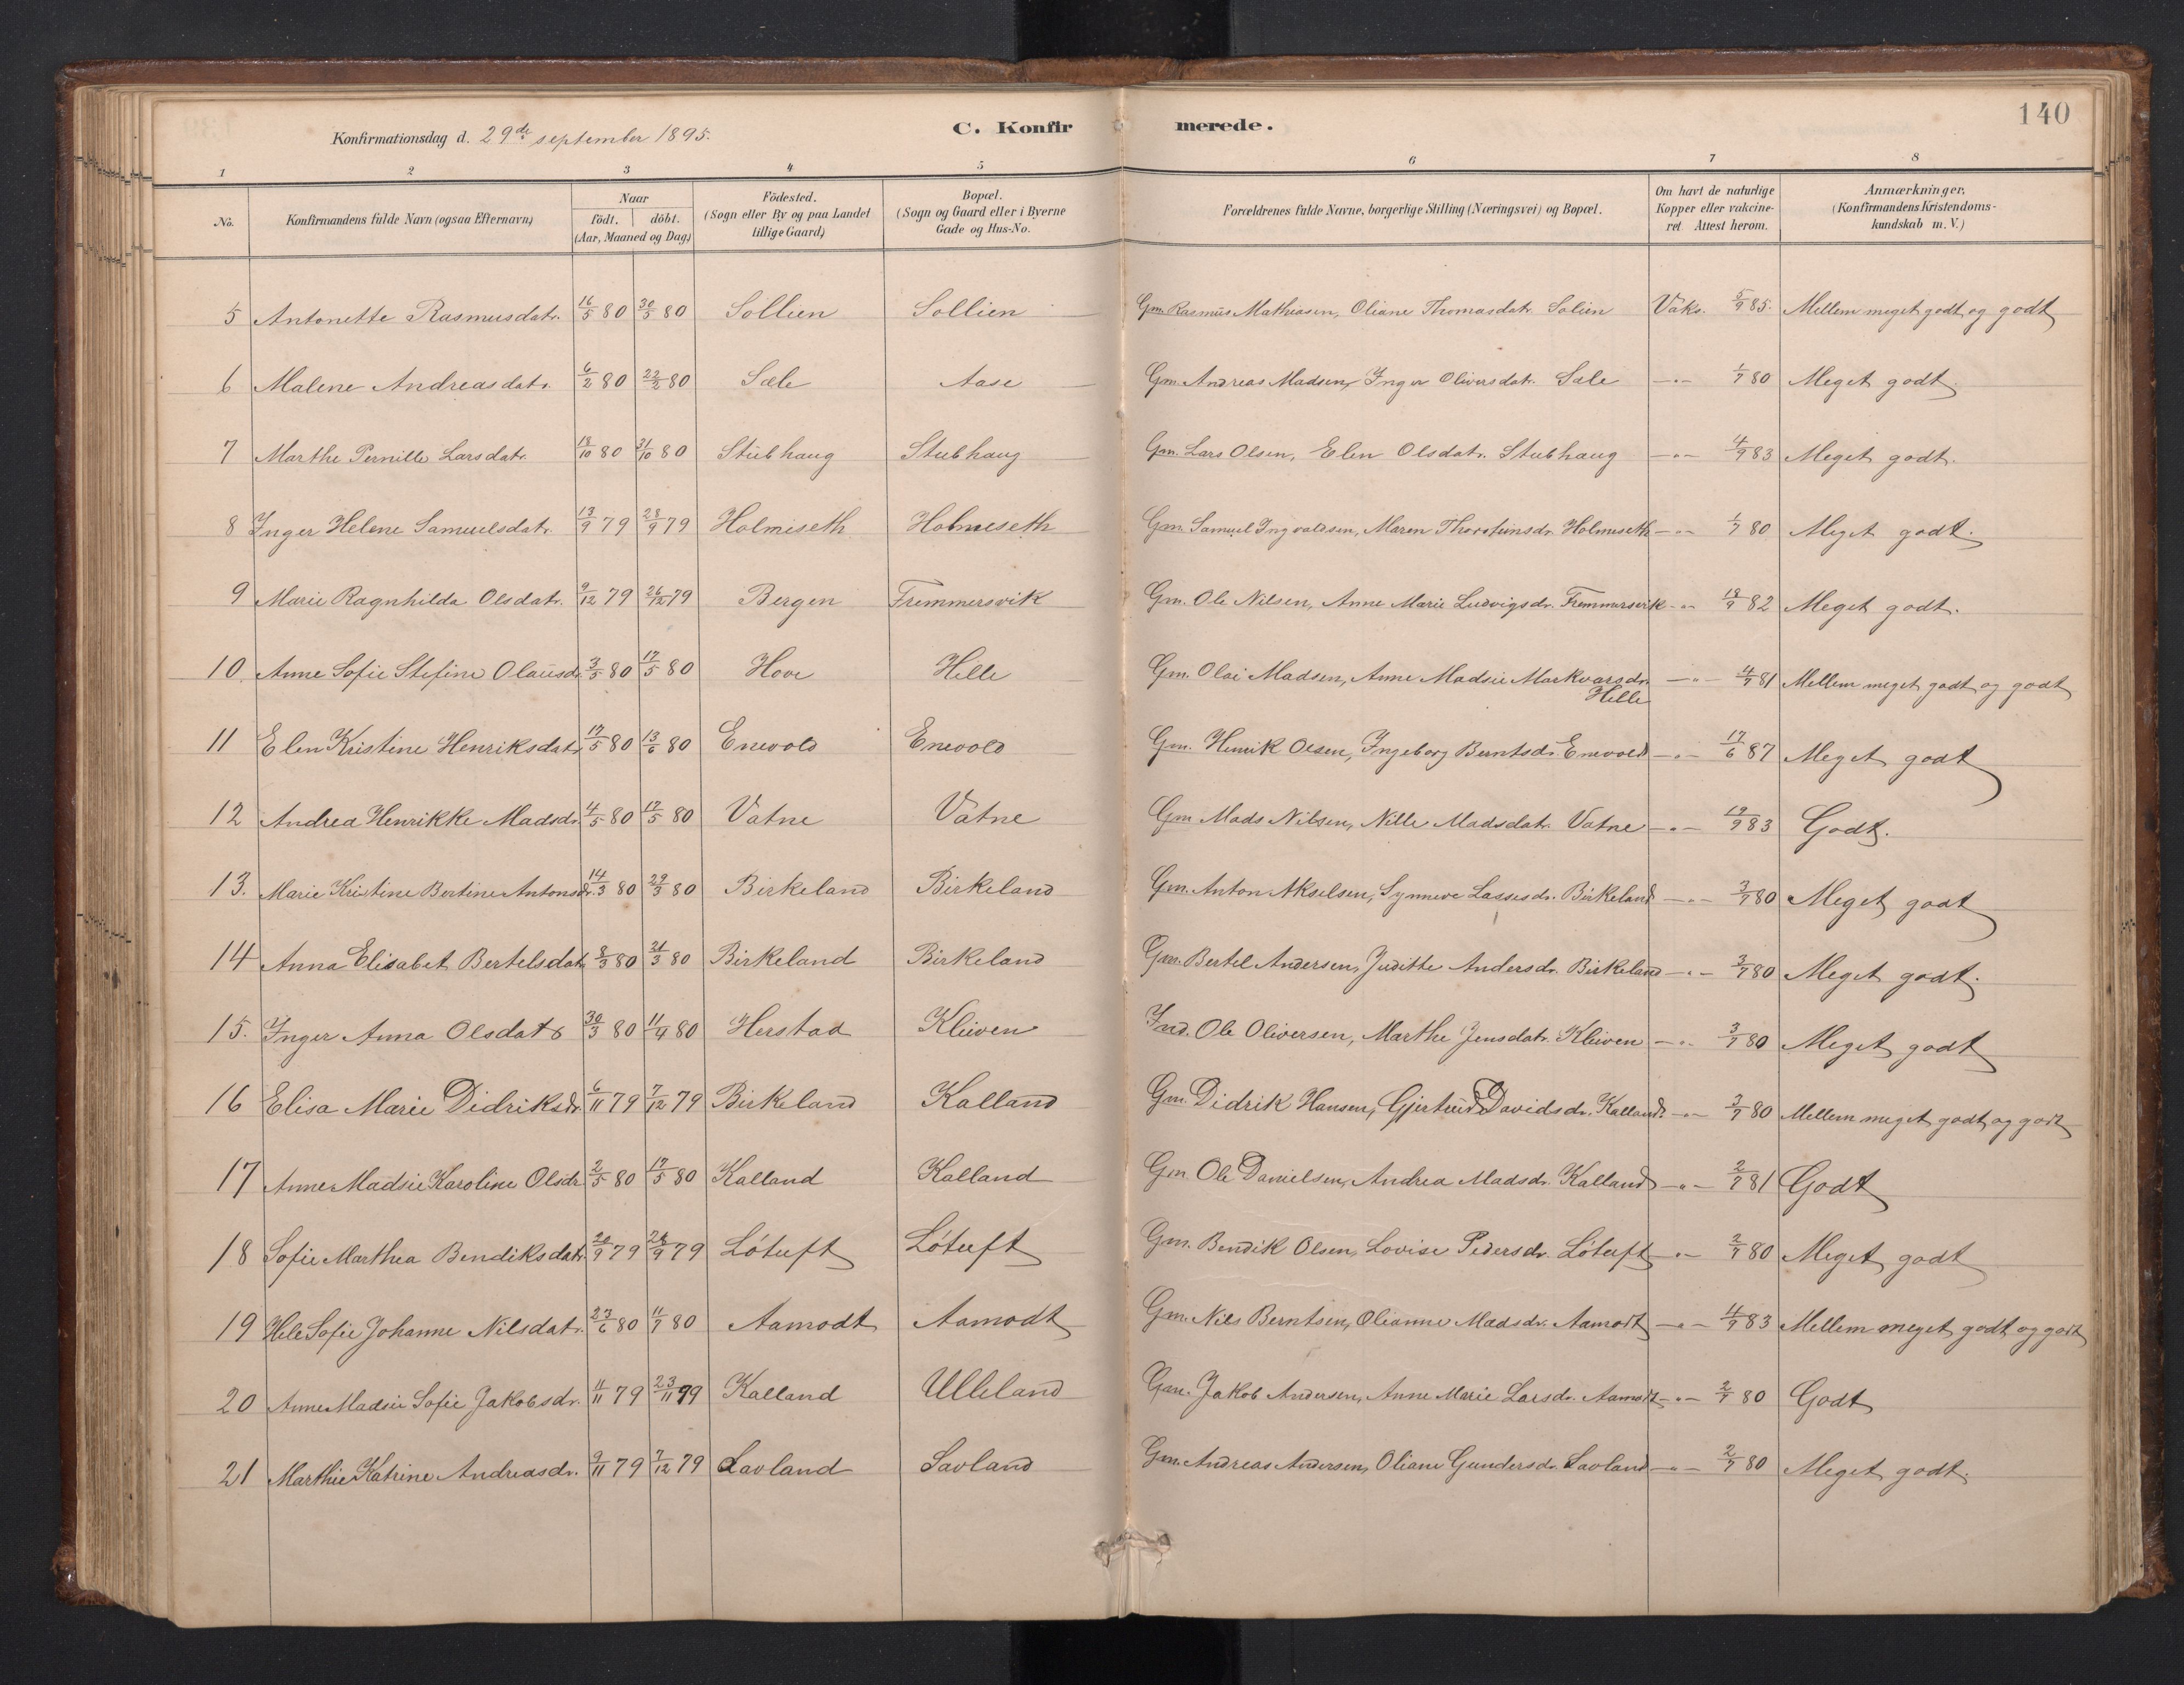 140
Konfirmationsdag d. 29de september 1895.
C. Konfirmerede.
1 2 3 4 5 6 7 8
No. | Konfirmandens fulde Navn (ogsaa Efternavn) | Naar födt. döbt. (Aar, Maaned og Dag) | Födested. (Sogn eller By og paa Landet tillige Gaard) | Bopæl. (Sogn og Gaard eller i Byerne Gade og Hus-No. | Forældrenes fulde Navne, borgerlige Stilling (Næringsvei) og Bopæl. | Om havt de naturlige Kopper eller vakcineret Attest herom. | Anmærkninger, (Konfirmandens Kristendomskundskab m. V.)
5 Antonette Rasmusdatr. 16/5 80 30/5 80 Sollien Sollien Gm. Rasmus Mathiasen, Oliane Thomasdatr. Solien Vaks. 5/9 85. Mellem meget godt og godt
6 Malene Andreasdatr. 6/2 80 22/2 80 Sæle Aase Gm. Andreas Madsen, Inger Oliversdatr. Sæle —"— 1/7 80 Meget godt
7 Marthe Pernille Larsdatr. 18/10 80 31/10 80 Stubhaug Stubhaug Gm. Lars Olsen, Elen Olsdatr. Stubhaug —"— 4/9 83 Meget godt.
8 Inger Helene Samuelsdatr. 13/9 79 28/9 79 Holmeseth Holmeseth Gm. Samuel Ingvaldsen, Maren Thorsteinsdr. Holmeseth —"— 1/7 80 Meget godt.
9 Marie Ragnhilda Olsdatr. 9/12 79 26/12 79 Bergen Fremmersvik Gm. Ole Nilsen, Anne Marie Ludvigsdr. Fremmersvik —"— 18/9 82 Meget godt.
10 Anne Sofie Stefine Olausdr. 3/5 80 17/5 80 Hove Hille Gm. Olai Madsen, Anne Madsie Markvarsdr. Helle —"— 4/9 81 Mellem meget godt og godt
11 Elen Kristine Henriksdatr. 17/5 80 13/6 80 Enevold Enevold Gm. Henrik Olsen, Ingeborg Berntsdr. Enevold —"— 17/6 87 Meget godt
12 Andrea Henrikke Madsdr. 4/5 80 17/5 80 Vatne Vatne Gm. Mads Nilsen, Nille Madsdatr. Vatne —"— 19/9 83 Godt.
13. Marie Kristine Bertine Antonsdr. 14/3 80 29/3 80 Birkeland Birkeland Gm. Anton Akselsen, Synneve Lassesdr. Birkeland —"— 3/7 80 Meget godt
14 Anna Elisabet Bertelsdatr. 8/3 80 21/3 80 Birkeland Birkeland Gm. Bertel Andersen, Juditte Andersdr. Birkeland —"— 3/7 80 Meget godt.
15. Inger Anna Olsdatr 30/3 80 11/4 80 Herstad Kleiven Ind. Ole Oliversen, Marthe Jensdatr. Kleiven —"— 3/7 80 Meget godt
16 Elisa Marie Didriksdr. 6/11 79 7/12 79 Birkeland Kalland Gm. Didrik Hansen, Gjertrud Davidsdr. Kalland. —"— 3/7 80 Mellem meget godt og godt
17 Anne Madsie Karoline Olsdr 2/5 80 17/5 80 Kalland Kalland Gm. Ole Danielsen, Andrea Madsdr. Kalland —"— 2/7 81 Godt
18 Sofie Marthea Bendiksdatr. 20/9 79 28/9 79 Lótuft Lótuft Gm. Bendik Olsen, Lovise Pedersdr. Lótuft —"— 2/7 80 Meget godt
19 Hele Sofie Johanne Nilsdatr. 23/6 80 11/7 80 Aamodt Aamodt Gm. Nils Berntsen, Olianne Madsdr. Aamodt —"— 4/9 83 Mellem meget godt og godt
20 Anne Madsie Sofie Jakobsdr. 11/11 79 23/11 79 Kalland Ulleland Gm. Jakob Andersen, Anne Marie Larsdr. Aamodt —"— 2/7 80 Godt
21 Marthie Katrine Andreasdr. 9/11 79 7/12 79 Savland Savland Gm. Andreas Andersen, Oliane Gundersdr. Savland —"— 2/7 80 Meget godt.